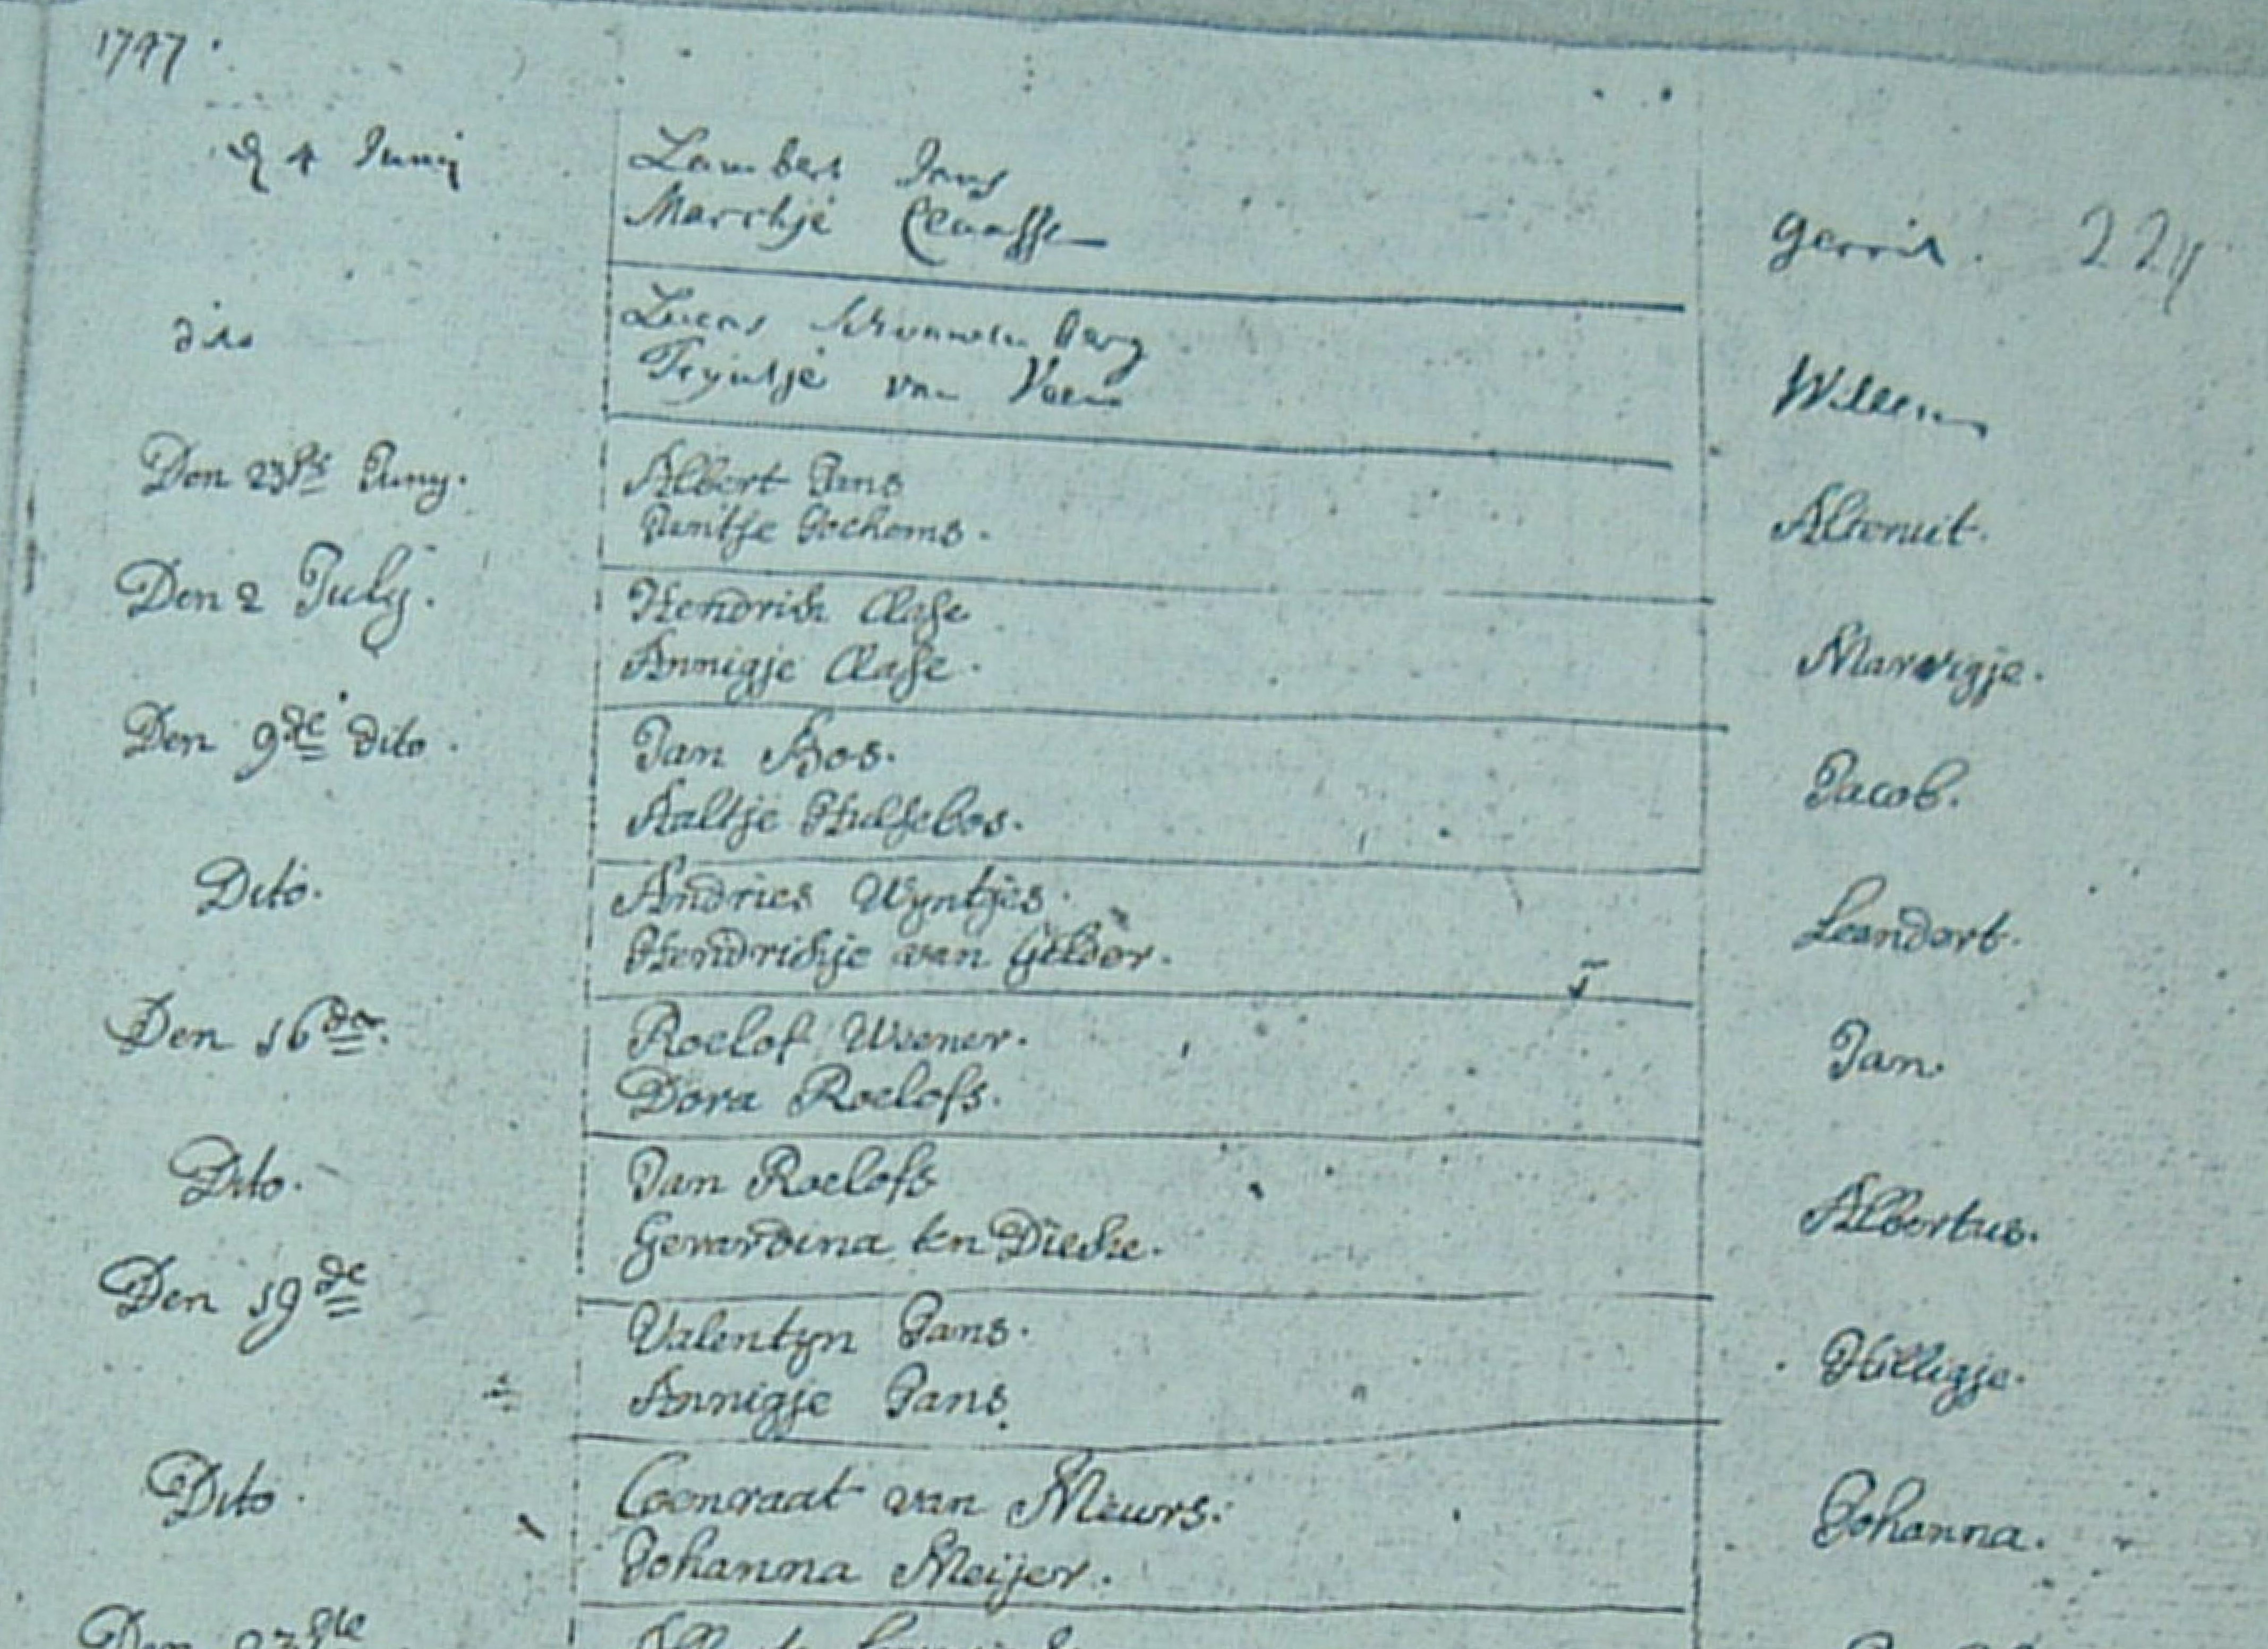 1747.
d 4 Junij
Lambert Jans
Marchje Claassen
Gerrit. 224
dito
Lucas Schouwenberg
Tryntje van Veen
Willem
Den 23ste Juny.
Albert Jans
Jochems.
Den 2 July.
Hendrik Clase
Annigje Clase.
Marrigje.
Den 9de dito.
Jan Bos.
Aaltje Hulsebos.
Jacob.
Dito.
Andries Wyntjes.
Hendrikje van Gelder.
Leendert.
Den 16de.
Roelof Weener.
Dora Roelofs.
Jan.
Dito.
Jan Roelofs
Gerardina ten Dieke.
Albertus.
Den 19de
Valentyn Jans.
Annigje Jans.
Hilligje.
Dito.
Coenraat van Meurs.
Johanna Meijer.
Johanna.
Den 23ste